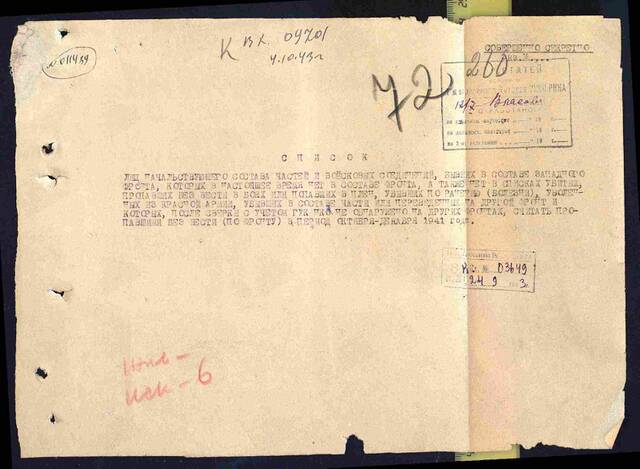 К вх. 04701
4.10.43г
№011439
СОВЕРШЕННО СЕКРЕТНО
72
260
С П И С О К
ЛИЦ НАЧАЛЬСТВУЮЩЕГО СОСТАВА ЧАСТЕЙ И ВОЙСКОВЫХ СОЕДИНЕНИЙ, БЫВШИХ В СОСТАВЕ ЗАПАДНОГО
ФРОНТА, КОТОРЫХ В НАСТОЯЩЕЕ ВРЕМЯ НЕТ В СОСТАВЕ ФРОНТА, А ТАКЖЕ НЕТ В СПИСКАХ УБИТЫХ,
ПРОПАВШИХ БЕЗ ВЕСТИ В БОЯХ ИЛИ ПОПАВШИХ В ПЛЕН, УБЫВШИХ ПО РАНЕНИЮ (БОЛЕЗНИ), УВОЛЕН-
НЫХ ИЗ КРАСНОЙ АРМИИ, УБЫВШИХ В СОСТАВЕ ЧАСТИ ИЛИ ПЕРЕВЕДЕННЫХ НА ДРУГОЙ ФРОНТ И
КОТОРЫХ, ПОСЛЕ СВЕРКИ С УЧЕТОМ ГУК НКО НЕ ОБНАРУЖЕНО НА ДРУГИХ ФРОНТАХ, СЧИТАТЬ ПРО-
ПАВШИМИ БЕЗ ВЕСТИ (ПО ФРОНТУ) В ПЕРИОД ОКТЯБРЯ-ДЕКАБРЯ 1941 ГОДА.
№ 03649
24 9
иск - 6